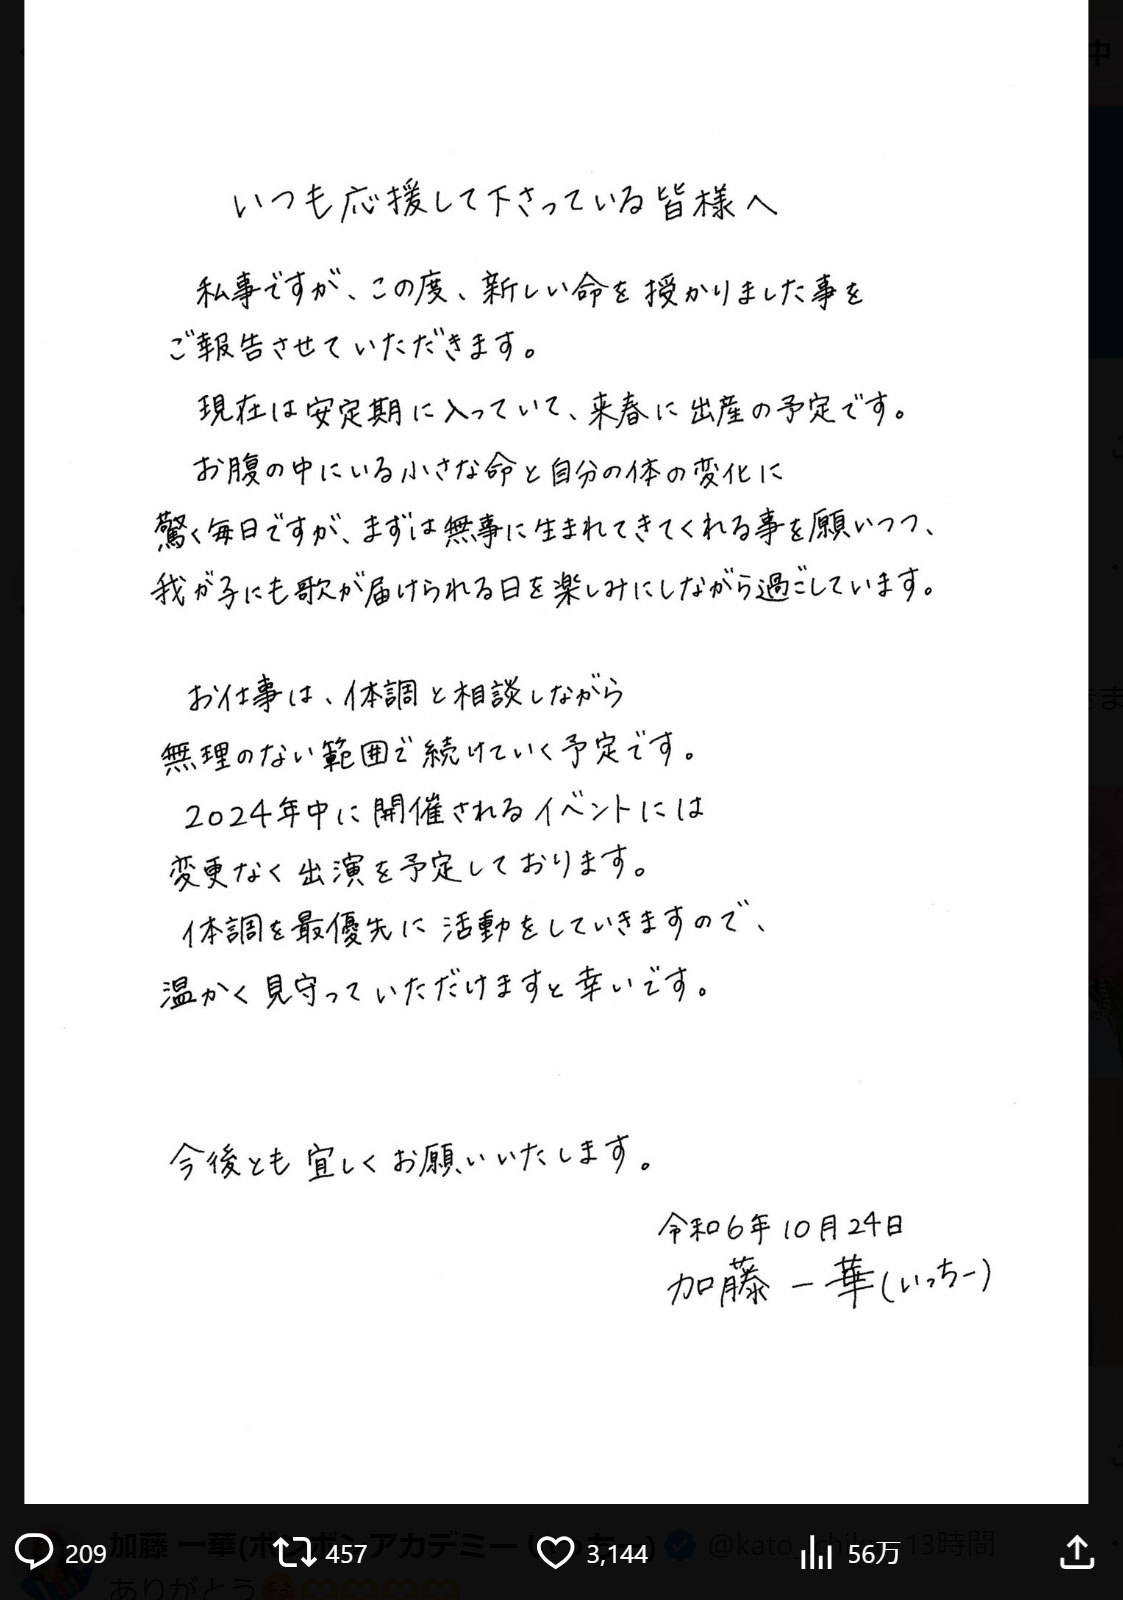 いつも応援して下さっている皆様へ
私事ですが、この度、新しい命を授かりました事を
ご報告させていただきます。
現在は安定期に入っていて、来春に出産の予定です。
お腹の中にいる小さな命と自分の体の変化に
驚く毎日ですが、まずは無事に生まれてきてくれる事を願いつつ、
我が子にも歌が届けられる日を楽しみにしながら過ごしています。
お仕事は、体調と相談しながら
無理のない範囲で続けていく予定です。
2024年中に開催されるイベントには
変更なく出演を予定しております。
体調を最優先に活動をしていきますので、
温かく見守っていただけますと幸いです。
今後とも宜しくお願いいたします。
令和6年10月24日
加藤一華(いっちー)
加藤 一華(ボンボンアカデミー いっちー) 13時間
209 457 3,144 56万
ありがとう